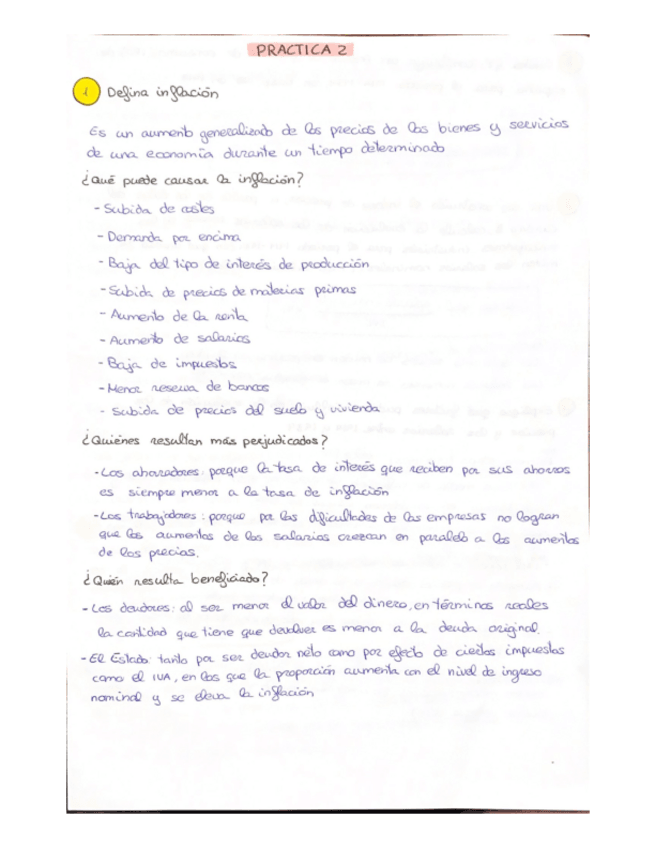 PRACTICA 2
1 Defina inflación
Es un aumento generalizado de los precios de los bienes y servicios
de una economía durante un tiempo determinado
¿Qué puede causar la inflación?
- Subida de costes
- Demanda por encima
- Baja del tipo de interés de producción
- Subida de precios de materias primas
- Aumento de la renta
- Aumento de salarios
- Baja de impuestos
- Menor reserva de bancos
- Subida de precios del suelo y vivienda
¿Quiénes resultan más perjudicados?
- Los ahorradores: porque la tasa de interés que reciben por sus ahorros
es siempre menor a la tasa de inflación
- Los trabajadores: porque por las dificultades de las empresas no logran
que los aumentos de los salarios crezcan en paralelo a los aumentos
de los precios.
¿Quién resulta beneficiado?
- Los deudores: al ser menor el valor del dinero, en términos reales
la cantidad que tiene que devolver es menor a la deuda original.
- El Estado: tanto por ser deudor neto como por efecto de ciertos impuestos
como el IVA, en los que la proporción aumenta con el nivel de ingreso
nominal y se eleva la inflación